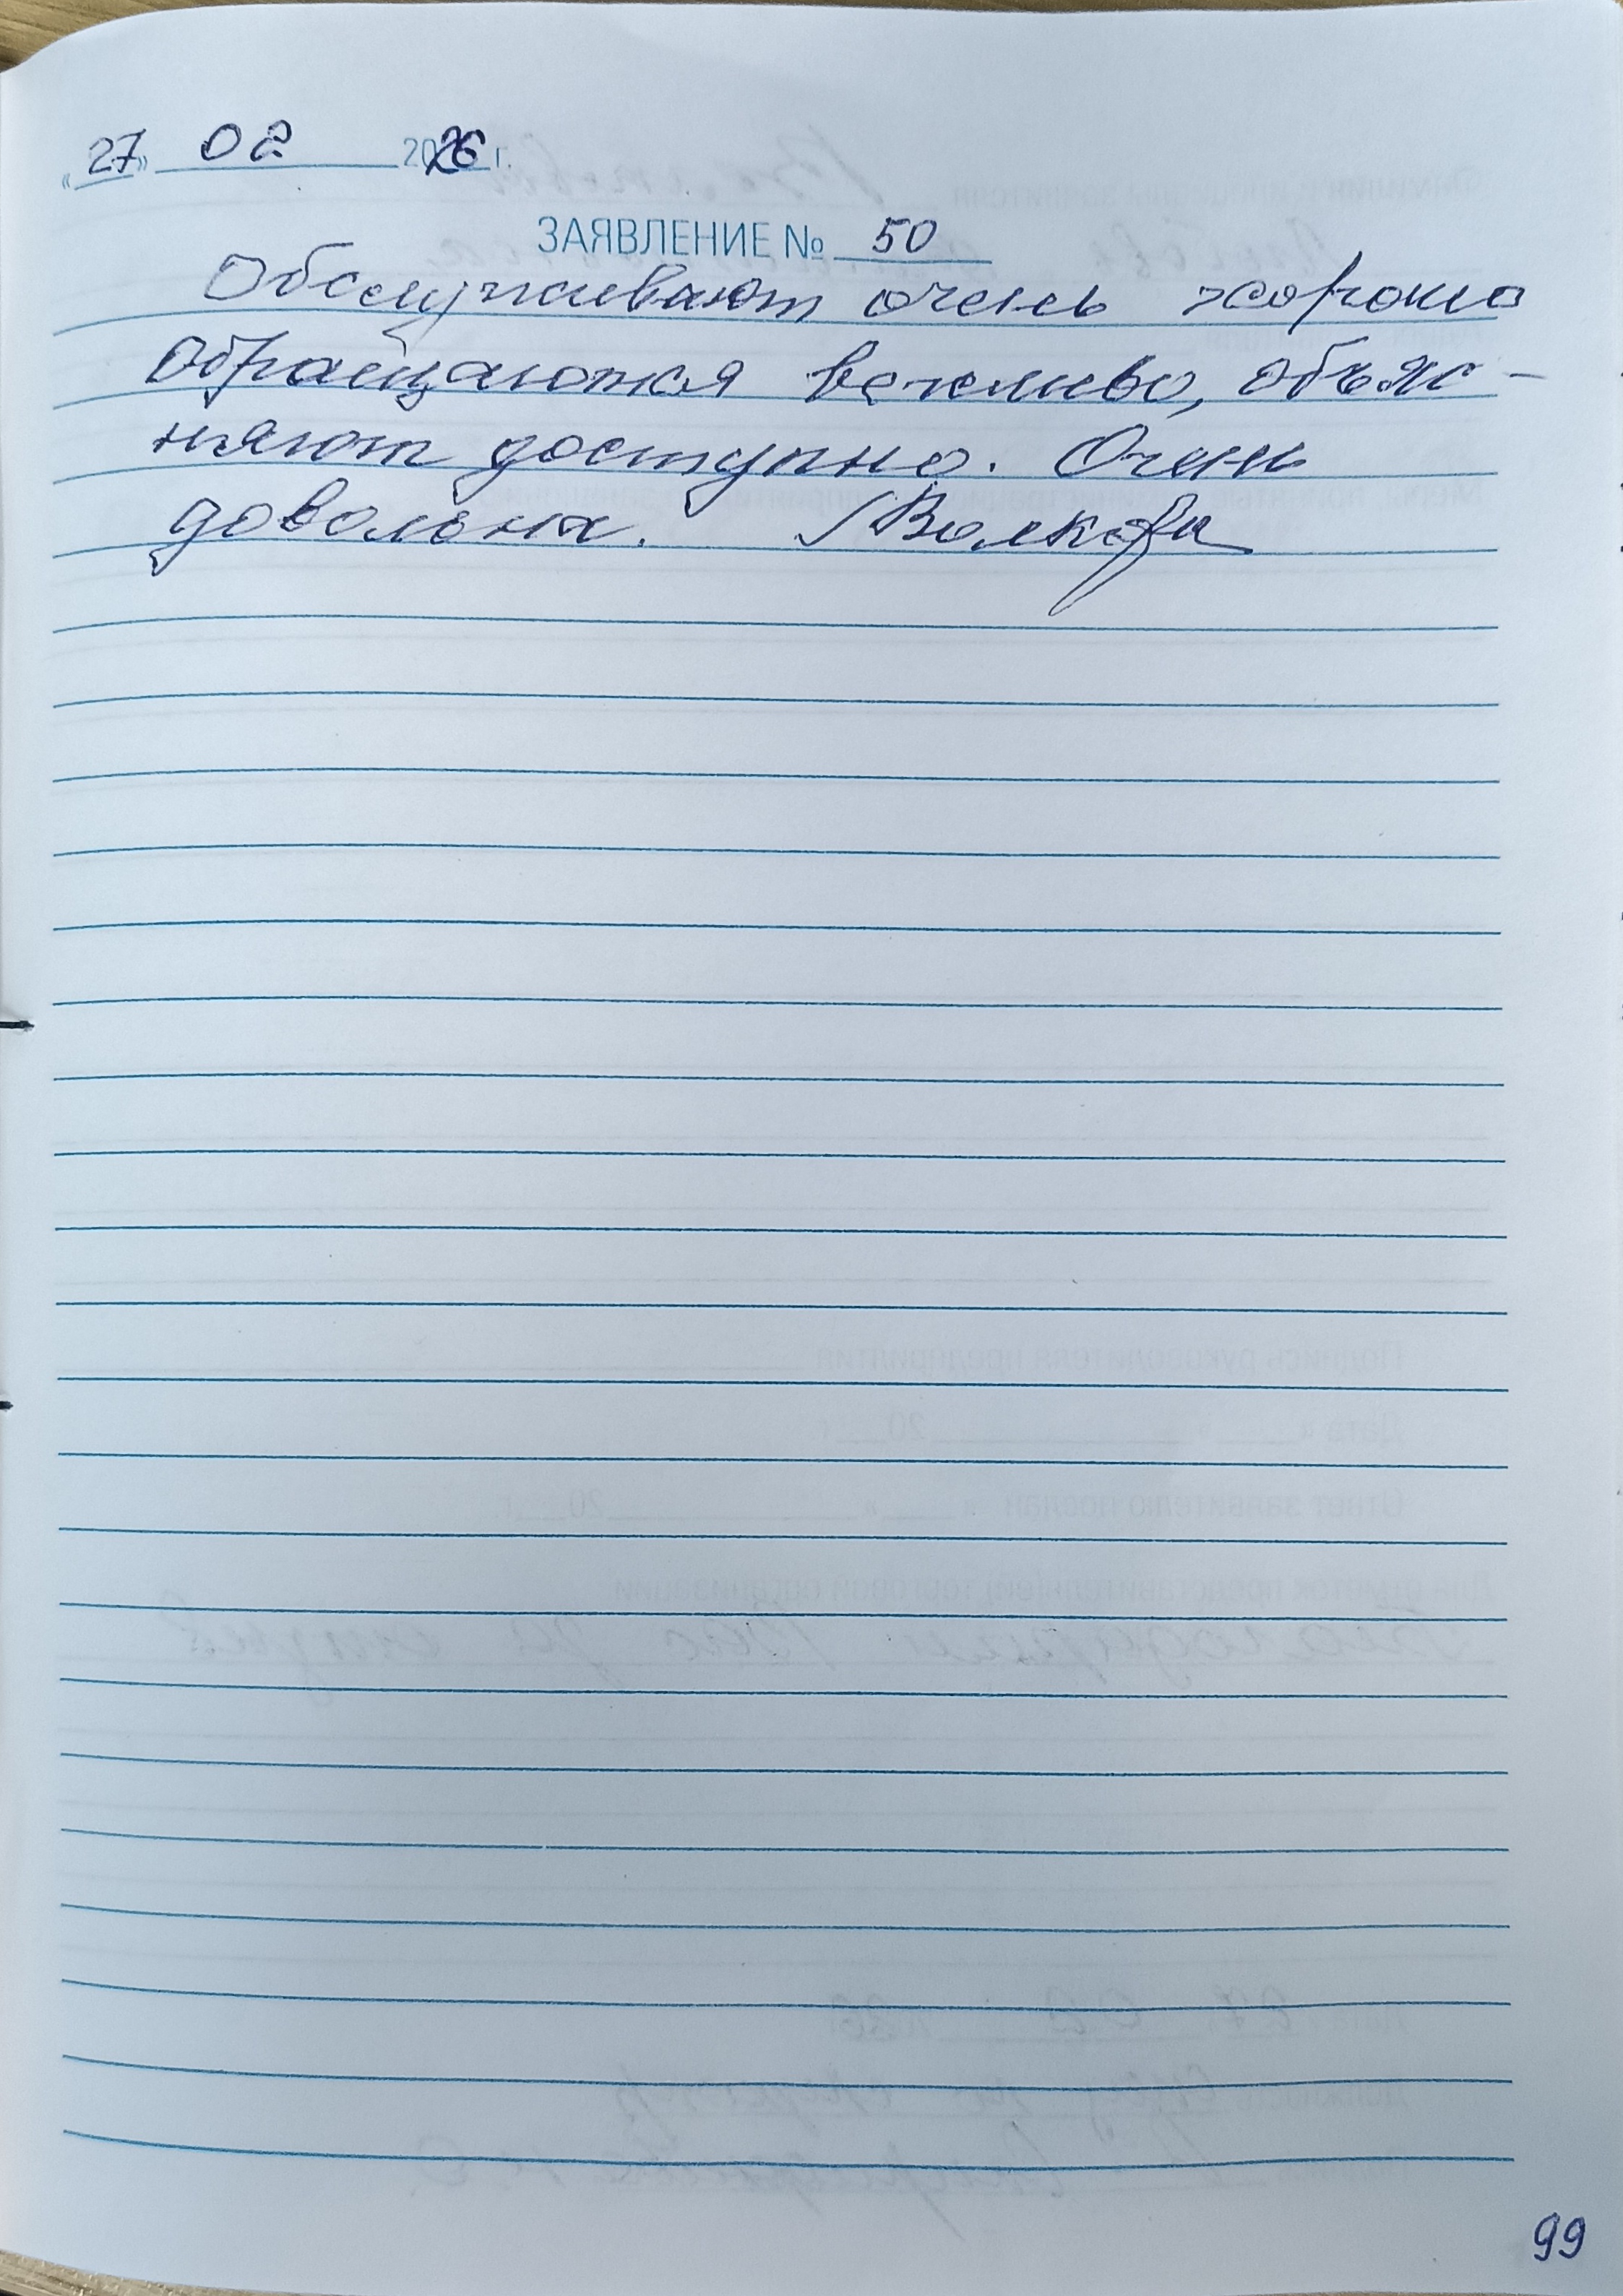 «27» 02 2026 г.
ЗАЯВЛЕНИЕ № 50
Обслуживают очень хорошо
Обращаются вежливо, объяс-
няют доступно. Очень
довольна. Волкова
99